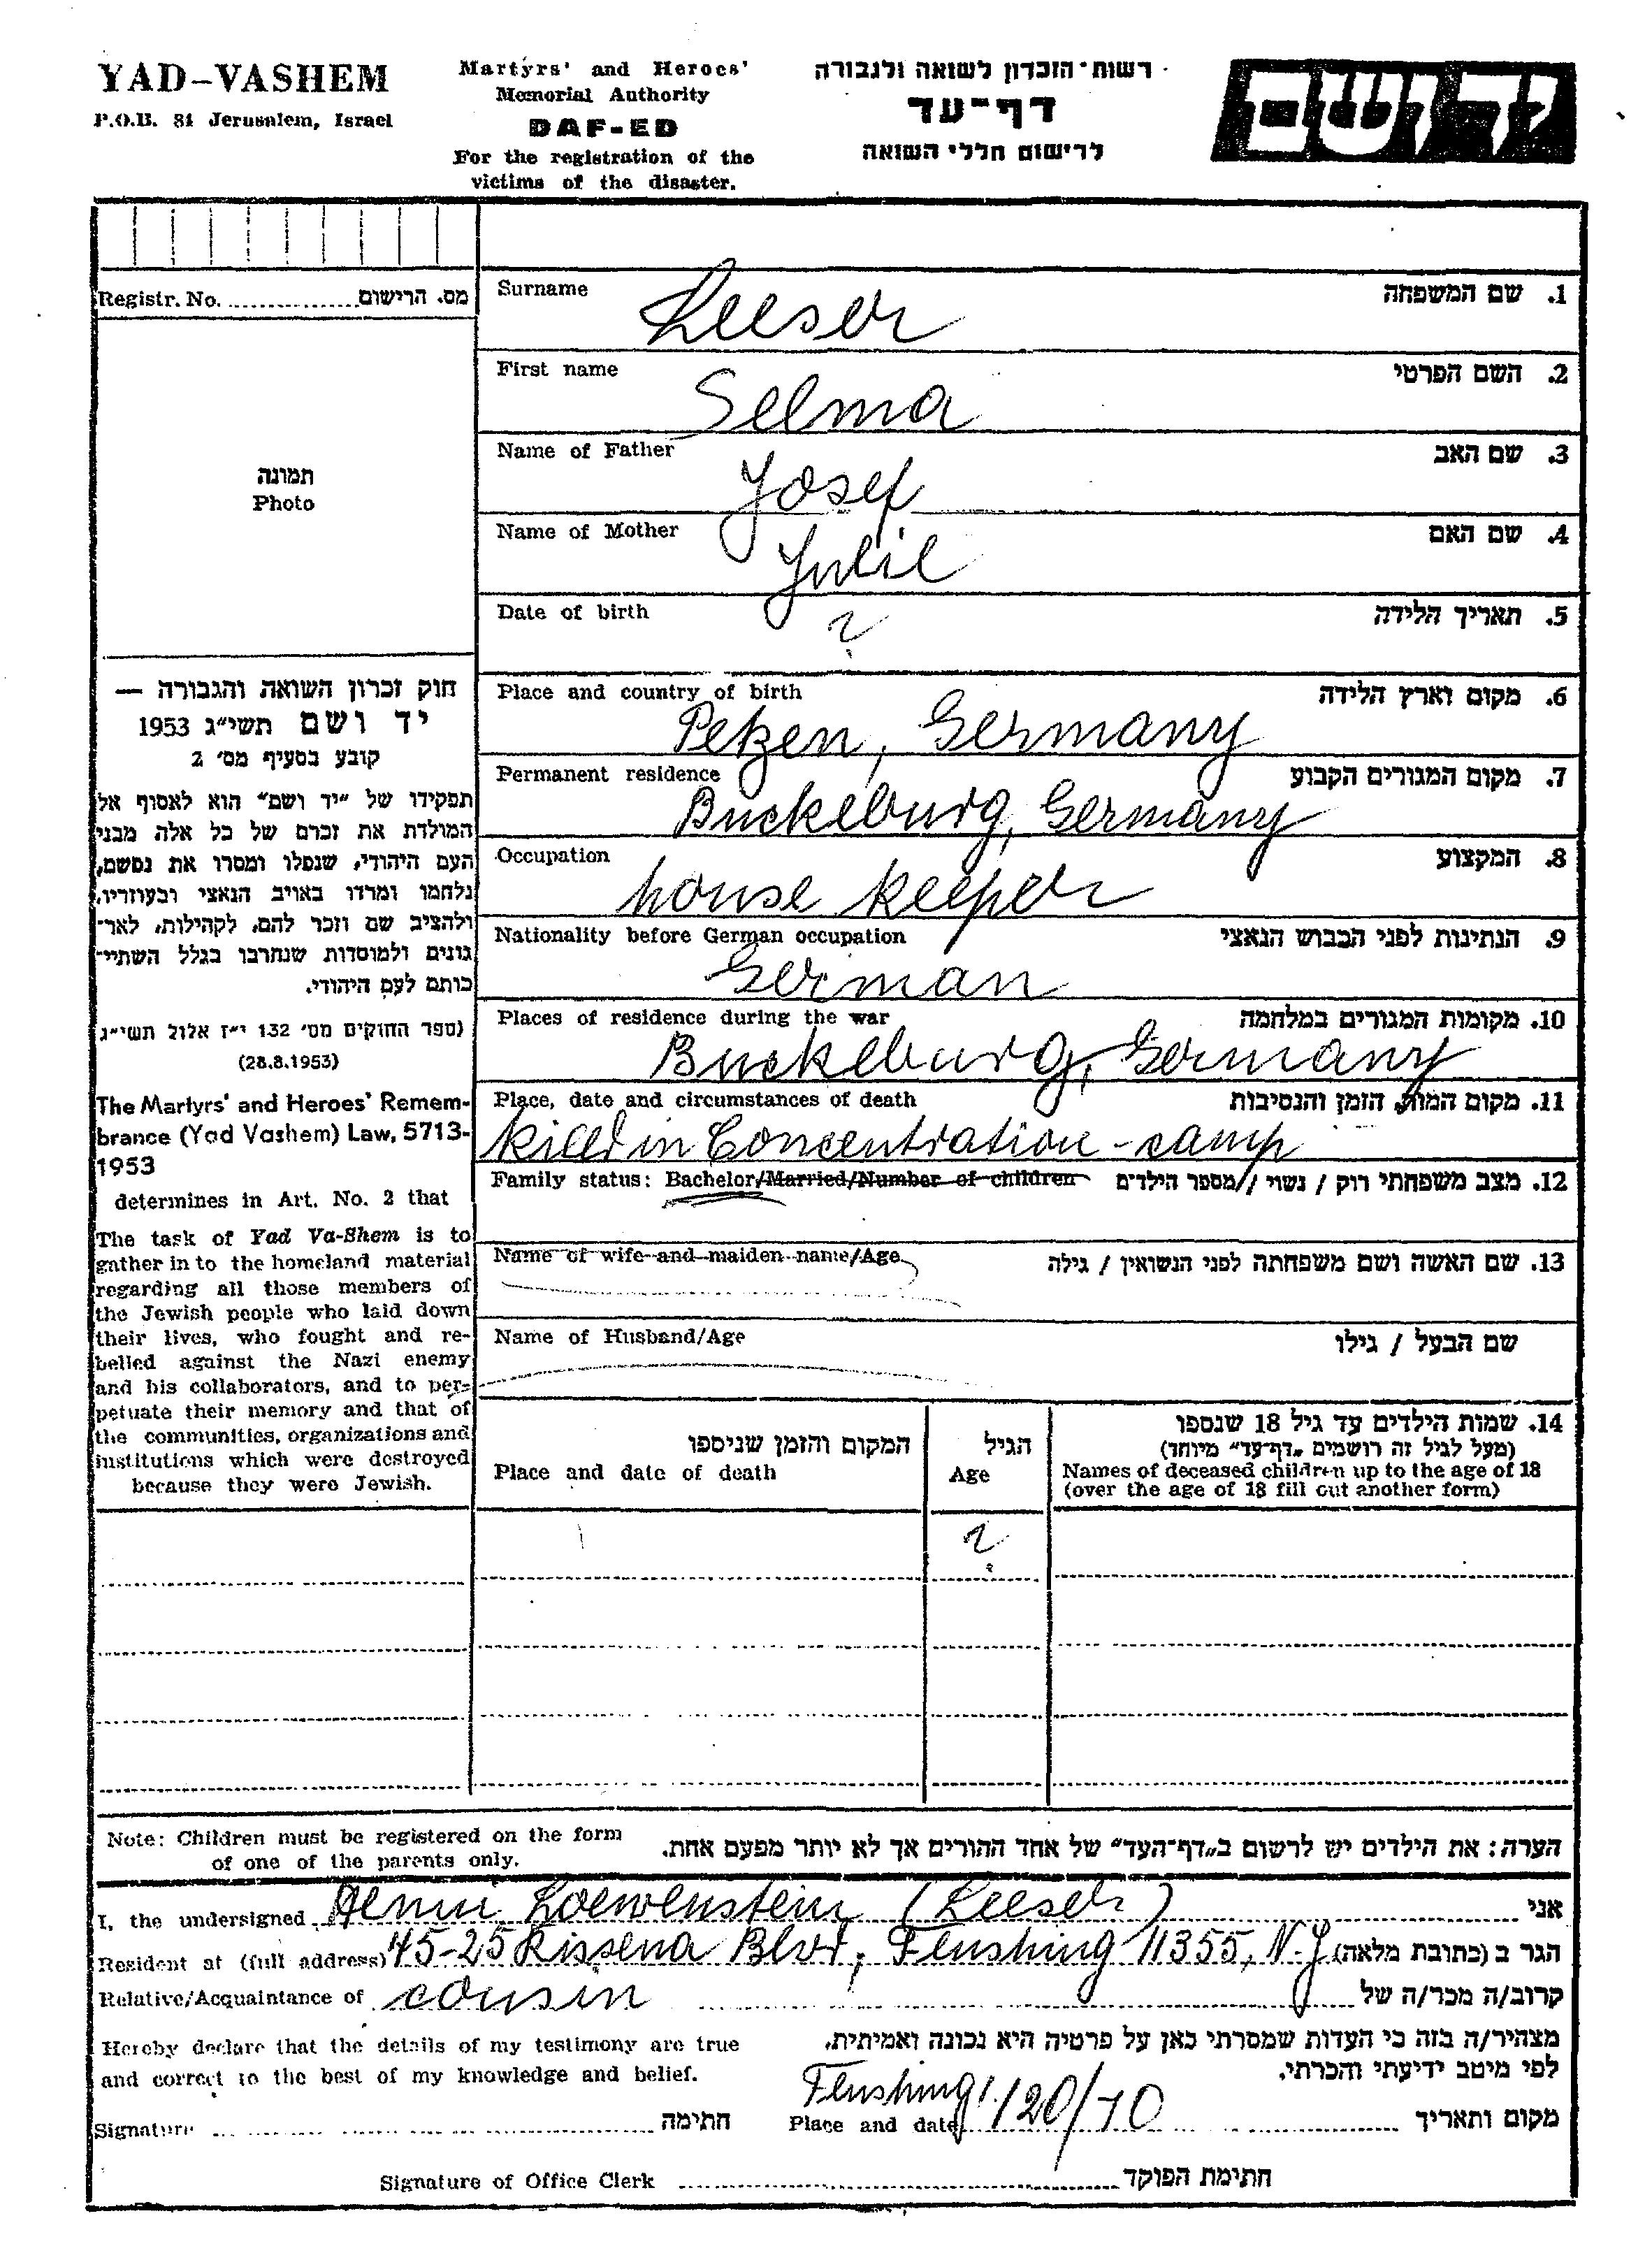 YAD-VASHEM
P.O.B. 84 Jerusalem, Israel
Martyrs' and Heroes'
Memorial Authority
DAF-ED
For the registration of the
victims of the disaster.
רשות־הזכרון לשואה ולגבורה
דף־עד
לרישום חללי השואה
יד ושם
Registr. No. מס. הרישום
תמונה
Photo
חוק זכרון השואה והגבורה —
יד ושם תשי״ג 1953
קובע בסעיף מס׳ 2
תפקידו של ״יד ושם״ הוא לאסוף אל
המולדת את זכרם של כל אלה מבני
העם היהודי, שנפלו ומסרו את נפשם,
נלחמו ומרדו באויב הנאצי ובעוזריו,
ולהציב שם וזכר להם, לקהילות, לאר־
גונים ולמוסדות שנחרבו בגלל השתיי־
כותם לעם היהודי.
(ספר החוקים מס׳ 132 י״ז אלול תשי״ג
(28.8.1953)
The Martyrs' and Heroes' Remem-
brance (Yad Vashem) Law, 5713-
1953
determines in Art. No. 2 that
The task of Yad Va-Shem is to
gather in to the homeland material
regarding all those members of
the Jewish people who laid down
their lives, who fought and re-
belled against the Nazi enemy
and his collaborators, and to per-
petuate their memory and that of
the communities, organizations and
institutions which were destroyed
because they were Jewish.
Surname 1. שם המשפחה
Leeser
First name 2. השם הפרטי
Selma
Name of Father 3. שם האב
Josef
Name of Mother 4. שם האם
Julie
Date of birth 5. תאריך הלידה
?
Place and country of birth 6. מקום וארץ הלידה
Petzen, Germany
Permanent residence 7. מקום המגורים הקבוע
Buckeburg, Germany
Occupation 8. המקצוע
house keeper
Nationality before German occupation 9. הנתינות לפני הכבוש הנאצי
German
Places of residence during the war 10. מקומות המגורים במלחמה
Buckeburg, Germany
Place, date and circumstances of death 11. מקום המות, הזמן והנסיבות
killed in Concentration-camp
Family status: Bachelor/Married/Number of children 12. מצב משפחתי רוק / נשוי / מספר הילדים
Name of wife and maiden name/Age 13. שם האשה ושם משפחתה לפני הנשואין / גילה
Name of Husband/Age שם הבעל / גילו
המקום והזמן שניספו
Place and date of death
הגיל
Age
14. שמות הילדים עד גיל 18 שנספו
(מעל לגיל זה רושמים ״דף־עד״ מיוחד)
Names of deceased children up to the age of 18
(over the age of 18 fill out another form)
?
Note: Children must be registered on the form
of one of the parents only.
הערה: את הילדים יש לרשום ב״דף־העד״ של אחד ההורים אך לא יותר מפעם אחת.
I, the undersigned Henni Loewenstein (Leeser) אני
Resident at (full address) 45-25 Kissena Blvd, Flushing 11355, N.Y הגר ב (כתובת מלאה)
Relative/Acquaintance of cousin קרוב/ה מכר/ה של
Hereby declare that the details of my testimony are true
and correct to the best of my knowledge and belief.
מצהיר/ה בזה כי העדות שמסרתי כאן על פרטיה היא נכונה ואמיתית,
לפי מיטב ידיעתי והכרתי.
Signature חתימה
Place and date Flushing 1/20/70 מקום ותאריך
Signature of Office Clerk חתימת הפוקד